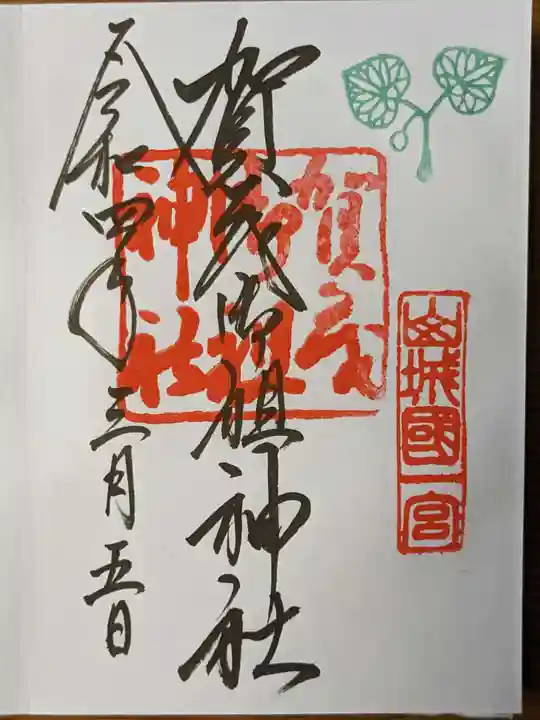 山城國一宮
賀茂御祖神社
賀茂
御祖
神社
令和四年三月五日